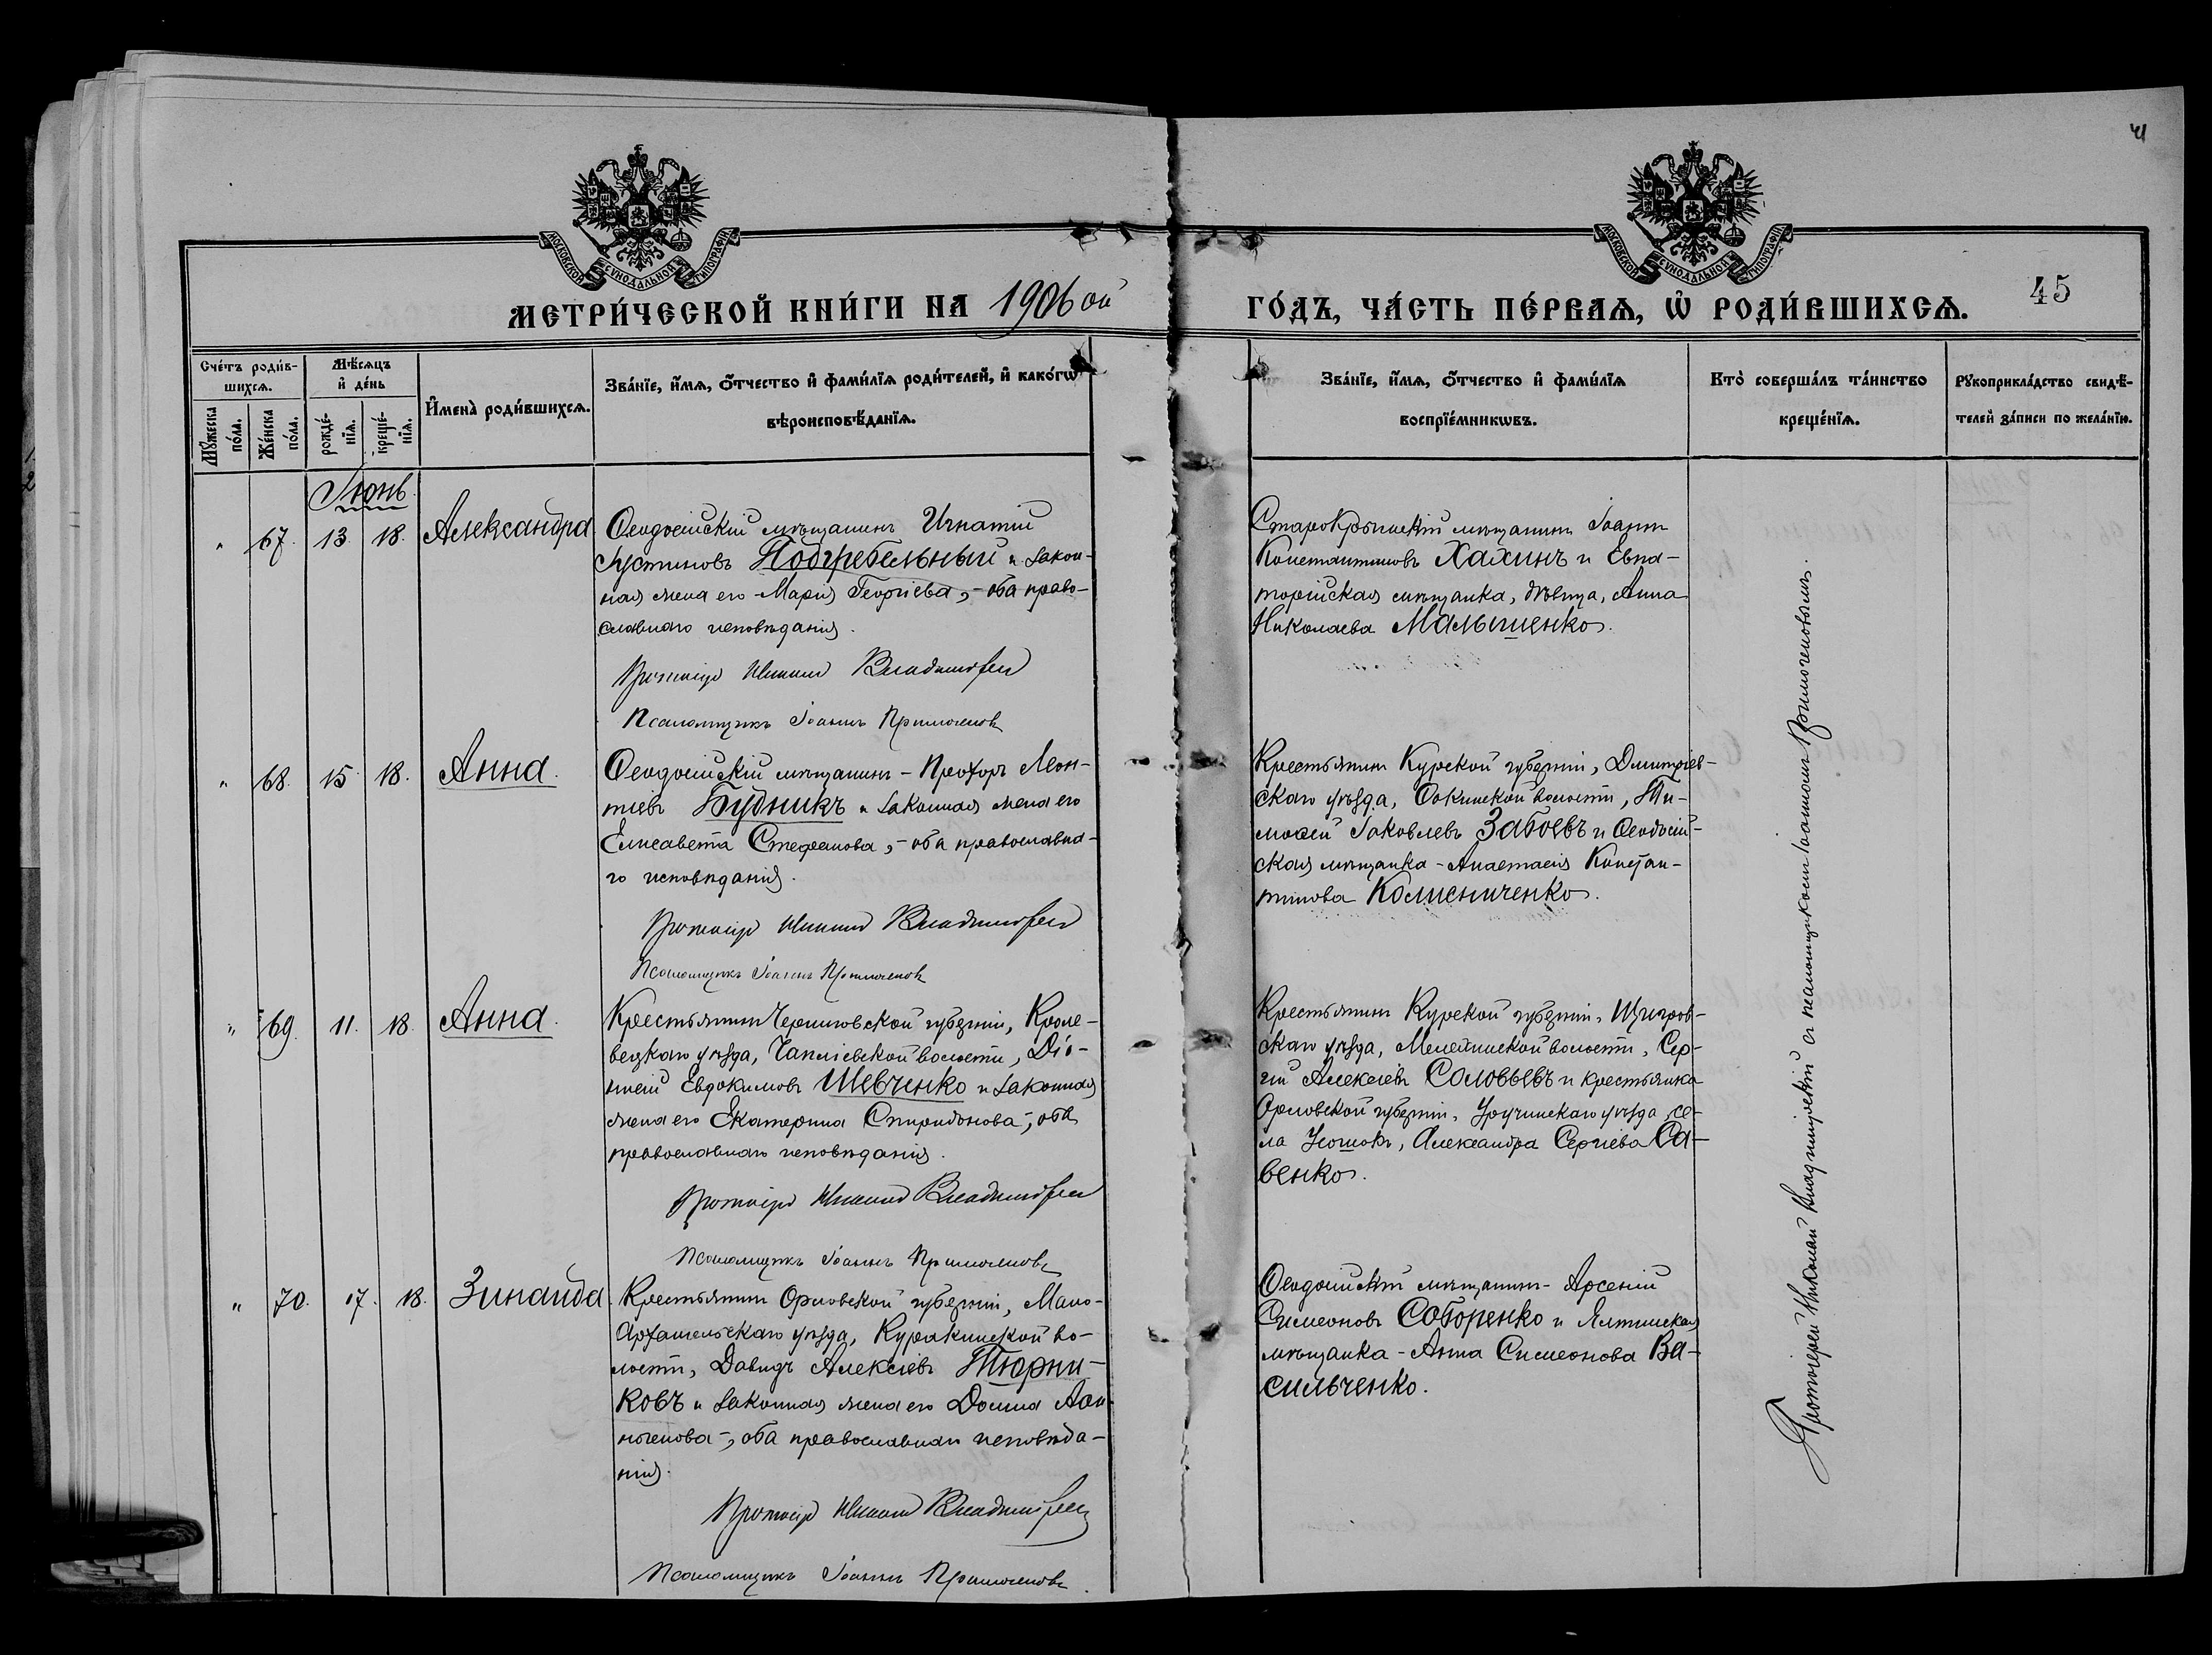 41
МОСКОВСКОЙ СѴНОДАЛЬНОЙ ТИПОГРАФІИ
МОСКОВСКОЙ СѴНОДАЛЬНОЙ ТИПОГРАФІИ
МЕТРИ́ЧЕСКОЙ КНИ́ГИ НА 1906 ой
ГО́ДЪ, ЧА́СТЬ ПЕ́РВАѦ, Ѽ РОДИ́ВШИХСѦ.
45
Сче́тъ роди́в-
шихсѧ.
Мѣ́сѧцъ
и҆ де́нь
Мꙋ́жеска
по́ла.
Же́нска
по́ла.
рожде́-
нїѧ.
креще́-
нїѧ.
И҆мена̀ роди́вшихсѧ.
Зва́нїе, и҆́мѧ, ѻ҆́тчество и҆ фами́лїѧ роди́телей, и҆ како́гѡ
вѣроисповѣ́данїѧ.
Зва́нїе, и҆́мѧ, ѻ҆́тчество и҆ фами́лїѧ
воспрїе́мникѡвъ.
Кто̀ соверша́лъ та́инство
креще́нїѧ.
Рꙋкоприкла́дство свидѣ́-
телей за́писи по жела́нїю.
Іюнь
" 67. 13. 18. Александра
Ѳеодосійскій мѣщанинъ Игнатій
Іустиновъ Подгребельный и закон-
ная жена его Марія Георгіева, - оба право-
славнаго исповѣданія.
Протоіерей Николай Владимірскій
Псаломщикъ Іоаннъ Примогеновъ
Старокрымскій мѣщанинъ Іоаннъ
Константиновъ Хахинъ и Евпа-
торійская мѣщанка, дѣвица, Анна
Николаева Малышенко.
" 68. 15. 18. Анна.
Ѳеодосійскій мѣщанинъ - Прохоръ Леон-
тіевъ Будникъ и законная жена его
Елисавета Стефанова, - оба православна-
го исповѣданія.
Протоіерей Николай Владимірскій
Псаломщикъ Іоаннъ Примогеновъ
Крестьянинъ Курской губерніи, Дмитріев-
скаго уѣзда, волости, Ти-
моѳей Іаковлевъ Забоевъ и Ѳеодосій-
ская мѣщанка - Анастасія Констан-
тинова Колисниченко.
" 69. 11. 18. Анна.
Крестьянинъ Черниговской губерніи, Кроле-
вецкаго уѣзда, Чапліевской волости, Діо-
нисій Евдокимовъ Шевченко и законная
жена его Екатерина Спиридонова -, оба
православнаго исповѣданія.
Протоіерей Николай Владимірскій
Псаломщикъ Іоаннъ Примогеновъ
Крестьянинъ Курской губерніи, Щигров-
скаго уѣзда, Мелехинской волости, Сер-
гій Алексіевъ Соловьевъ и крестьянка
Орловской губерніи, уѣзда, се-
ла Александра Сергіева Са-
венко.
" 70. 17. 18. Зинаида.
Крестьянинъ Орловской губерніи, Мало-
архангельскаго уѣзда, Куракинской во-
лости, Давидъ Алексіевъ Тюрни-
ковъ и законная жена его Домна
оба православнаго исповѣда-
нія.
Протоіерей Николай Владимірскій
Псаломщикъ Іоаннъ Примогеновъ.
Ѳеодосійскій мѣщанинъ - Арсеній
Симеоновъ Соборенко и Ялтинская
мѣщанка - Анна Симеонова Ва-
сильченко.
Протоіерей Николай Владимірскій съ псаломщикомъ Іоанномъ Примогеновымъ.